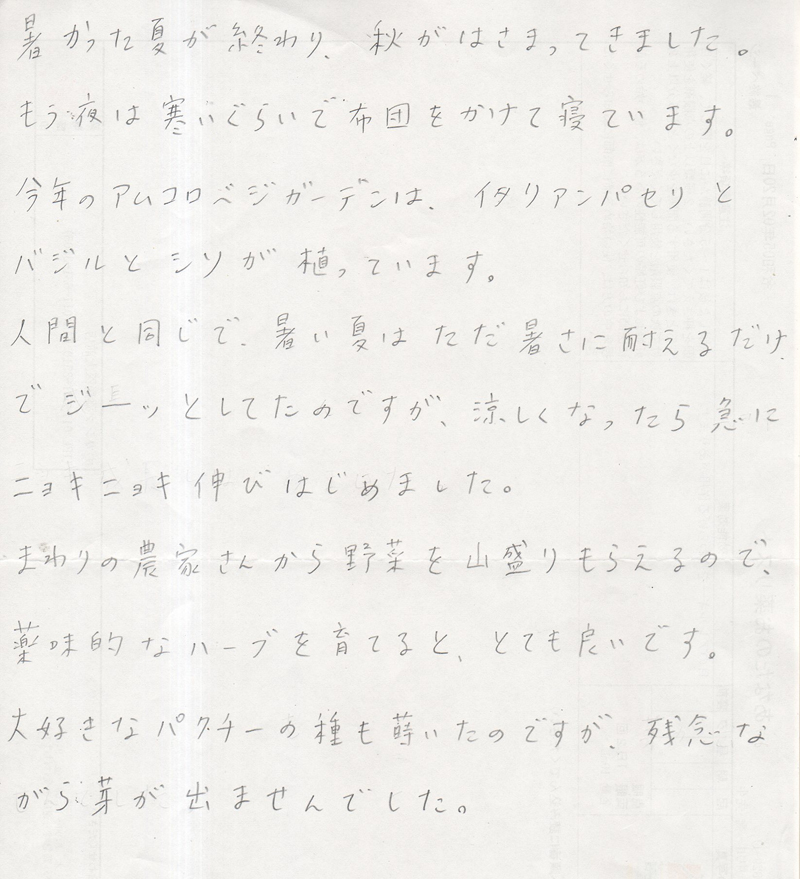 暑かった夏が終わり、秋がはさまってきました。
もう夜は寒いぐらいで布団をかけて寝ています。
今年のアムコロベジガーデンは、イタリアンパセリと
バジルとシソが植っています。
人間と同じで、暑い夏はただ暑さに耐えるだけ
でジーッとしてたのですが、涼しくなったら急に
ニョキニョキ伸びはじめました。
まわりの農家さんから野菜を山盛りもらえるので、
薬味的なハーブを育てると、とても良いです。
大好きなパクチーの種も蒔いたのですが、残念な
がら芽が出ませんでした。